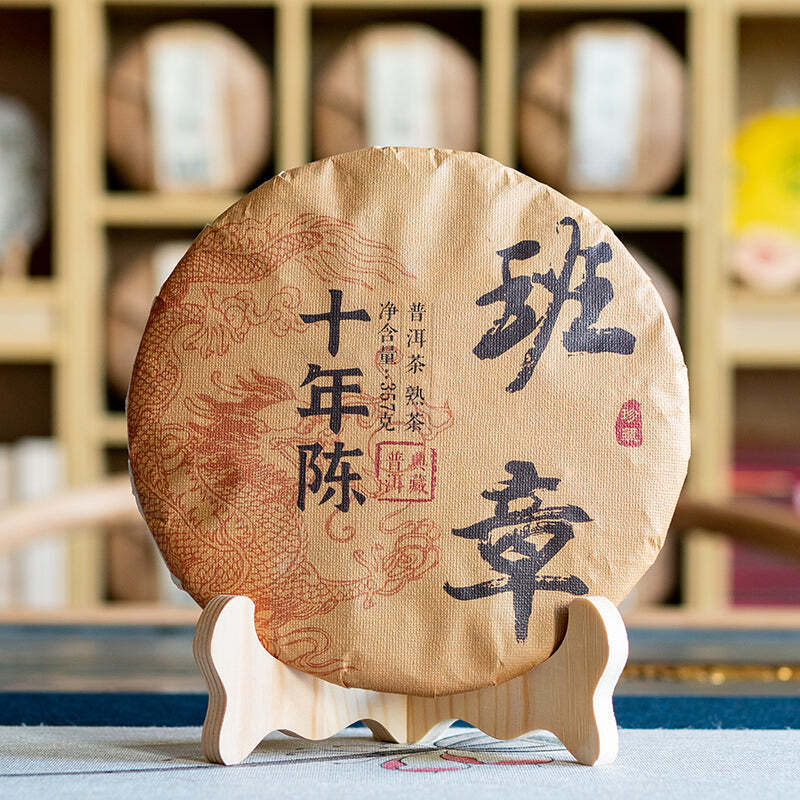 班章
普洱茶 熟茶
净含量:357克
典藏
普洱
十年陈